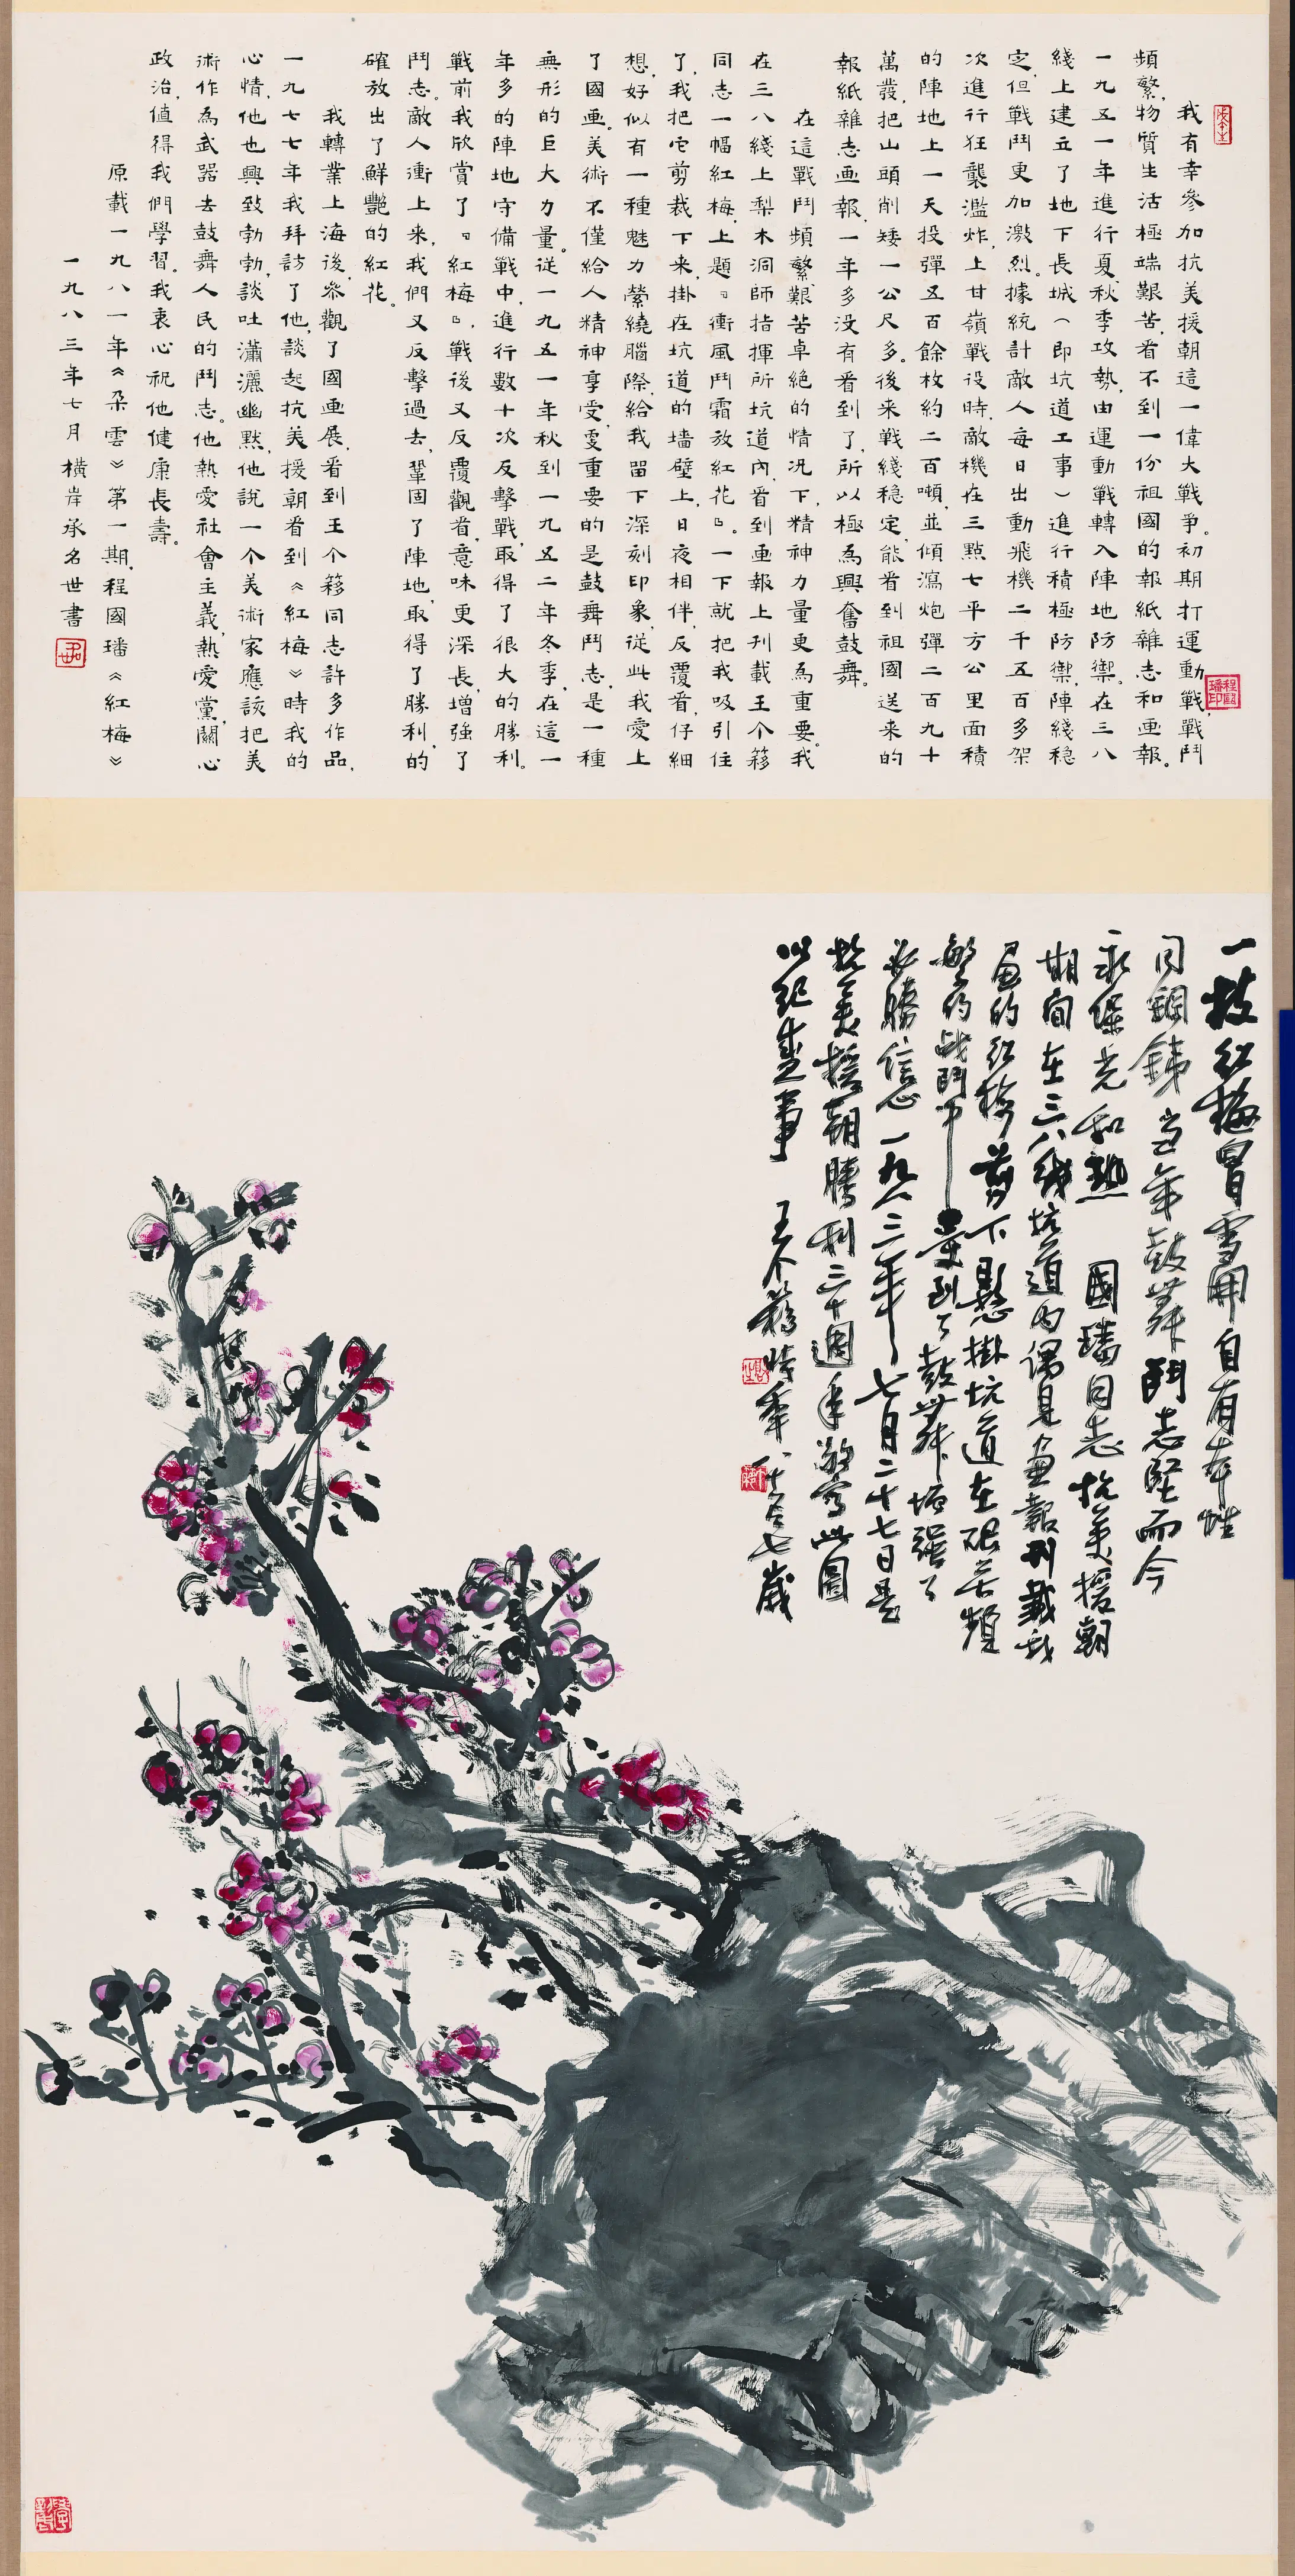 我有幸參加抗美援朝這一偉大戰爭。初期打運動戰，戰鬥
頻繁，物質生活極端艱苦，看不到一份祖國的報紙雜志和画報。
一九五一年進行夏秋季攻勢，由運動戰轉入陣地防禦。在三八
綫上建立了地下長城（即坑道工事）進行積極防禦，陣綫穩
定，但戰鬥更加激烈。據統計敵人每日出動飛機二千五百多架
次進行狂襲濫炸，上甘嶺戰役時，敵機在三點七平方公里面積
的陣地上一天投彈五百餘枚約二百噸，並傾瀉炮彈二百九十
萬發，把山頭削矮一公尺多。後來戰綫穩定，能看到祖國送来的
報紙雜志画報，一年多没有看到了，所以極為興奮鼓舞。
在這戰鬥頻繁艱苦卓絕的情况下，精神力量更為重要。我
在三八綫上梨木洞師指揮所坑道內，看到画報上刋載王个簃
同志一幅紅梅，上題『衝風鬥霜放紅花』。一下就把我吸引住
了，我把它剪裁下来，掛在坑道的墙壁上，日夜相伴，反覆看，仔細
想，好似有一種魅力縈繞腦際，給我留下深刻印象，從此我愛上
了國画。美術不僅給人精神享受，更重要的是鼓舞鬥志，是一種
無形的巨大力量。從一九五一年秋到一九五二年冬季，在這一
年多的陣地守備戰中，進行數十次反擊戰，取得了很大的勝利。
戰前我欣賞了『紅梅』，戰後又反覆觀看，意味更深長，增強了
鬥志。敵人衝上来，我們又反擊過去，鞏固了陣地，取得了勝利，的
確放出了鮮艷的紅花。
我轉業上海後，参觀了國画展，看到王个簃同志許多作品，
一九七七年我拜訪了他，談起抗美援朝看到《紅梅》時我的
心情，他也興致勃勃，談吐瀟灑幽黙，他說一个美術家應該把美
術作為武器去鼓舞人民的鬥志。他熱愛社會主義，熱愛黨，關心
政治，值得我們學習。我衷心祝他健康長壽。
原載一九八一年《朵雲》第一期，程國璠《紅梅》
一九八三年七月橫岸承名世書
程國璠印
一枝紅梅冒雪開自有本性
同鋼銕當年鼓舞鬥志堅而今
永保光和熱 國璠同志抗美援朝
期間在三八綫坑道内偶見畫報刋載我
畫的紅梅剪下懸掛坑道在艰苦頻
繁的战鬥中受到了鼓舞增强了
必勝信心一九八三年七月二十七日是
抗美援朝勝利三十週年敬寫此圖
以紀盛事 王个簃時年八十有七歲